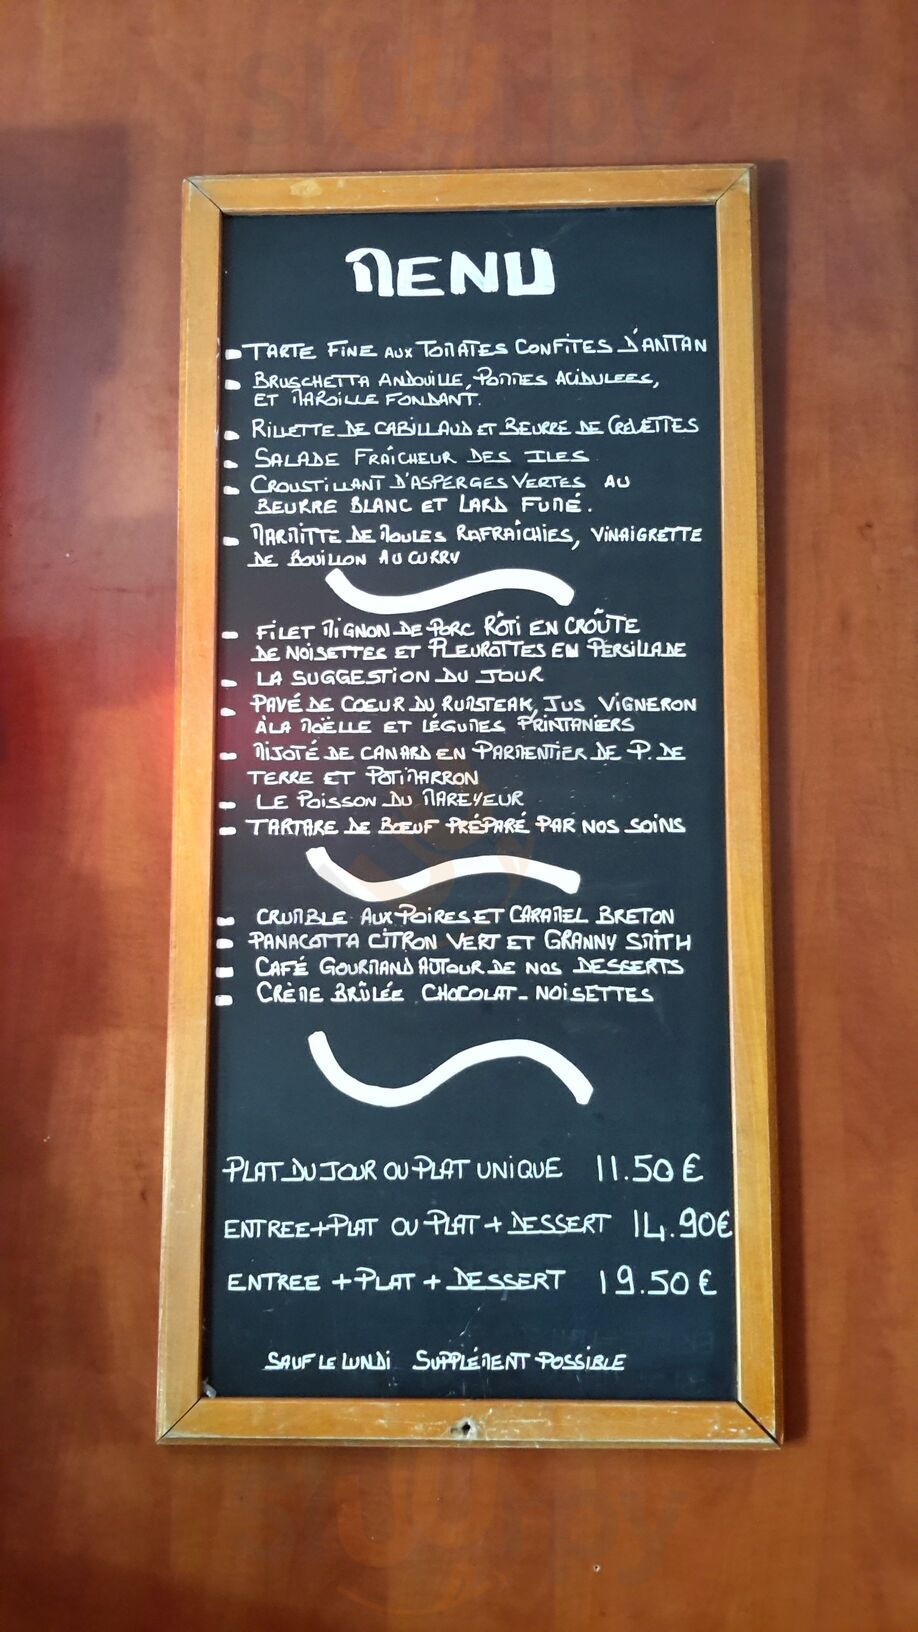 MENU
- TARTE FINE AUX TOMATES CONFITES D'ANTAN
- BRUSCHETTA ANDOUILLE, POMMES ACIDULEES,
ET MAROILLE FONDANT.
- RILLETTE DE CABILLAUD ET BEURRE DE CREVETTES
- SALADE FRAÎCHEUR DES ILES
- CROUSTILLANT D'ASPERGES VERTES AU
BEURRE BLANC ET LARD FUMÉ.
- MARMITTE DE MOULES RAFRAÎCHIES, VINAIGRETTE
DE BOUILLON AU CURRY
- FILET MIGNON DE PORC RÔTI EN CROÛTE
DE NOISETTES ET PLEUROTTES EN PERSILLADE
- LA SUGGESTION DU JOUR
- PAVÉ DE COEUR DU RUMSTEAK, JUS VIGNERON
À LA MOËLLE ET LÉGUMES PRINTANIERS
- MIJOTÉ DE CANARD EN PARMENTIER DE P. DE
TERRE ET POTIMARRON
- LE POISSON DU MAREYEUR
- TARTARE DE BOEUF PRÉPARÉ PAR NOS SOINS
- CRUMBLE AUX POIRES ET CARAMEL BRETON
- PANACOTTA CITRON VERT ET GRANNY SMITH
- CAFÉ GOURMAND AUTOUR DE NOS DESSERTS
- CRÈME BRÛLÉE CHOCOLAT - NOISETTES
PLAT DU JOUR OU PLAT UNIQUE 11.50 €
ENTREE + PLAT OU PLAT + DESSERT 14.90€
ENTREE + PLAT + DESSERT 19.50 €
SAUF LE LUNDI SUPPLÉMENT POSSIBLE